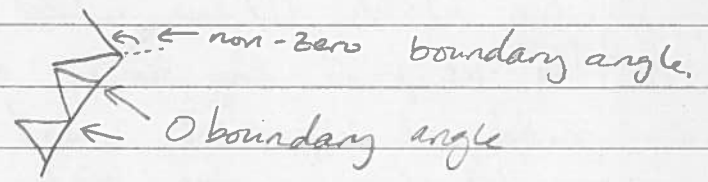 non-zero boundary angle.
0 boundary angle